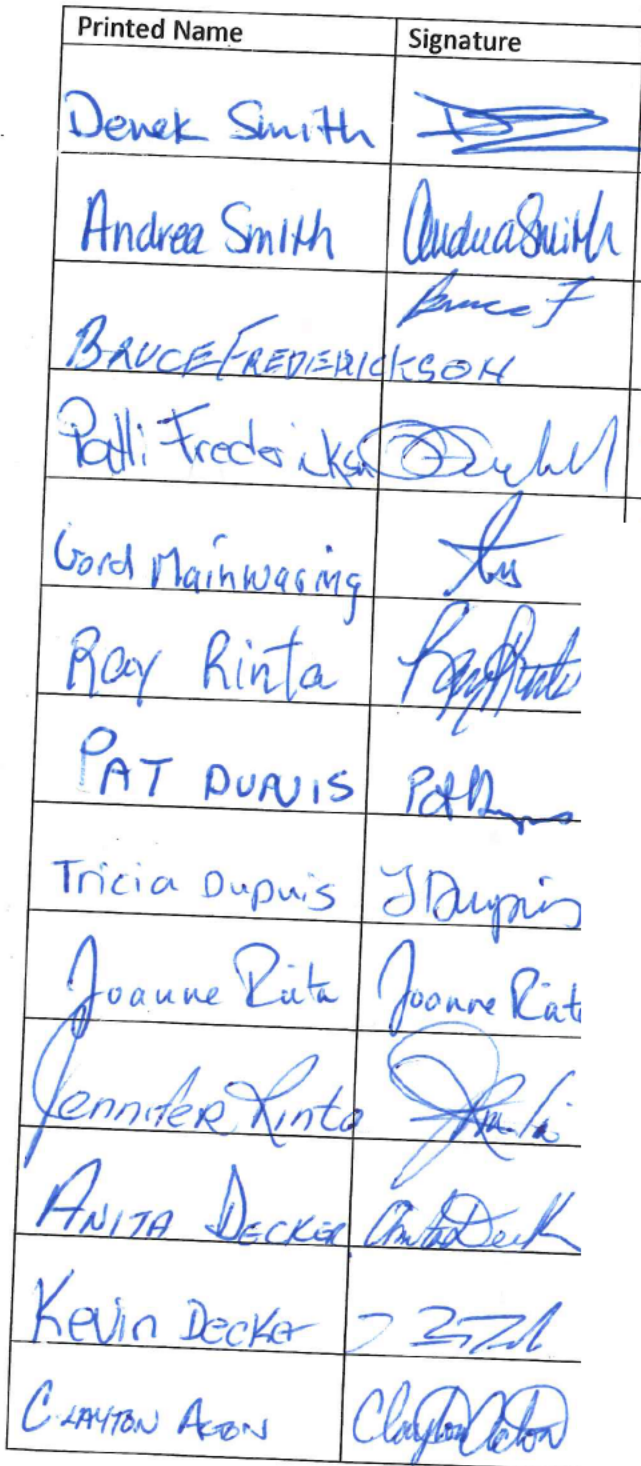 Printed Name Signature
Derek Smith
Andrea Smith Andrea Smith
Bruce F
BRUCE FREDERICKSON
Patti Frederickson
Gord Mainwaring
Ray Rinta Ray Rinta
PAT DUPUIS Pat Dupuis
Tricia Dupuis T Dupuis
Joanne Rinta Joanne Rinta
Jennifer Rinta
ANITA DECKER Anita Deck
Kevin Decker
CLAYTON ACTON Clayton Acton